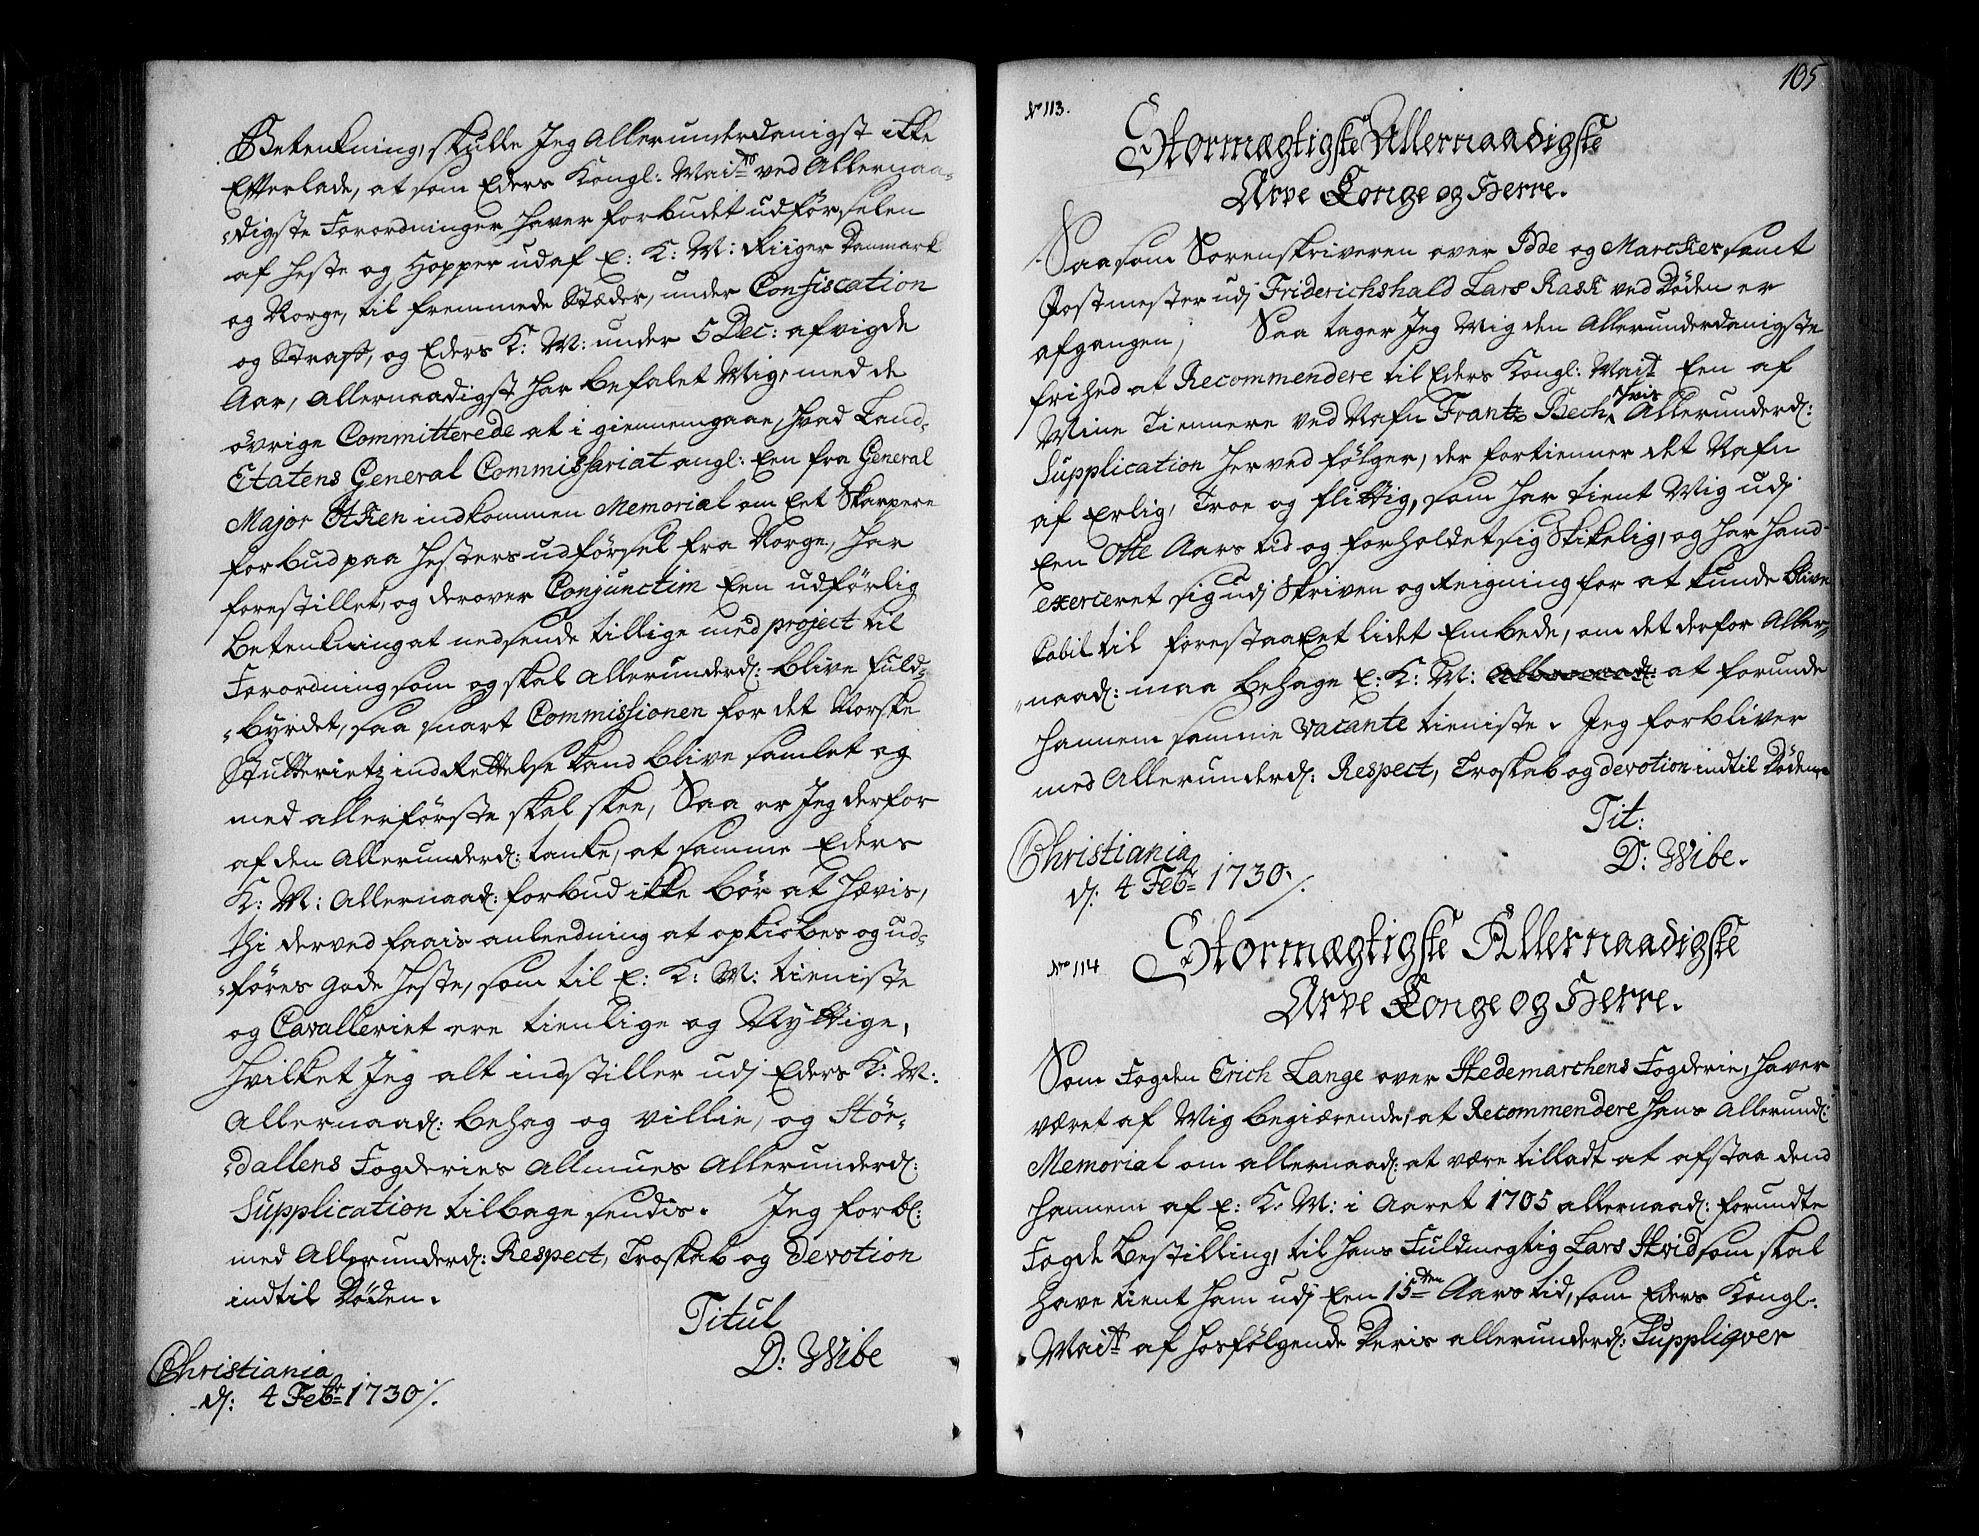 Betenkning, skulle Jeg Allerunderdanigst ikke
Efterlade, at som Eders Kongl: Maits ved Allernaa-
digste Forordninger haver forbudet udförselen
af heste og Hopper udaf E: K: M: Riiger Danmark
og Norge, til fremmede Stæder, under Confiscation
og Straff, og Eders K: M: under 5 Dec: afvigde
Aar, Allernaadigst har befalet Mig, med de
övrige Committerede at i giennemgaae, hvad Land-
Etatens General Commissariat angl: Een fra General
Major indkommen Memorial om Eet Skarpere
forbud paa Hesters udförsel fra Norge, har
forestillet, og derover Conjunctim Een udförlig
Betenkning at nedsende tillige med project til
Forordning som og skal Allerunderd: blive fuld-
byrdet, saa snart Commissionen for det Norske
Stutterietz indRettelse kand blive samlet og
med allerförste skal skee, Saa er Jeg derfor
af den Allerunderd: tanke, at samme Eders
K: M: Allernaad: forbud ikke bör at hævis,
thi derved faais anleedning at opkiöbes og ud-
föres gode heste, som til E: K: M: tieniste
og Cavalleriet ere tienlige og Nyttige,
hvilket Jeg alt indstiller udj Eders K: M:
Allernaad: behag og villie, og Stör-
dallens Fogderies Allmues Allerunderd:
Supplication tilbage sendis. Jeg forbl:
med Allerunderd: Respect, Troskab og Devotion
indtil Döden.
Titul
D: Wibe
Christiania
d: 4 Febr 1730
105
No 113.
Stormægtigste Allernaadigste
Arve Konge og Herre.
Saasom Sorenskriveren over Idde og Marcker, samt
Postmester udj Friderichshald Lars Rask ved Döden er
afgangen; Saa tager Jeg Mig den Allerunderdanigste
frihed at Recommendere til Eders Kongl: Mait Een af
Mine Tiennere ved Nafn Frantz Bech, hvis Allerunderd:
Supplication herved fölger, der fortienner det Nafn
af Erlig, Troe og flittig, som har tient Mig udj
Een Otte Aars tid og forholdet sig Skikelig, og har hand
exerceret sig udj Skriven og Reigning for at kunde blive
Cabil til forestaae Eet lidet Embede, om det derfor Aller-
naad: maa behage E: K: M: at forunde
hannem samme vacante tieniste. Jeg forbliver
med Allerunderd: Respect, Troskab og devotion indtil Döden
Tit:
D: Wibe.
Christiania
d: 4 Febr 1730.
No 114
Stormægtigste Allernaadigste
Arve Konge og Herre.
Som Fogden Erich Lange over Hedemarchens Fogderie, haver
været af Mig begiærende, at Recommendere hans Allerund:
Memorial om allernaad: at være tilladt at afstaa dend
hannem af E: K: M: i Aaret 1705 allernaad: forundte
Fogde bestilling, til hans Fuldmegtig Lars Hvid som skal
have tient ham udj Een 15den Aars tid, som Eders Kongl:
Mait af hosfölgende Deris allerunderd: Suppliqver